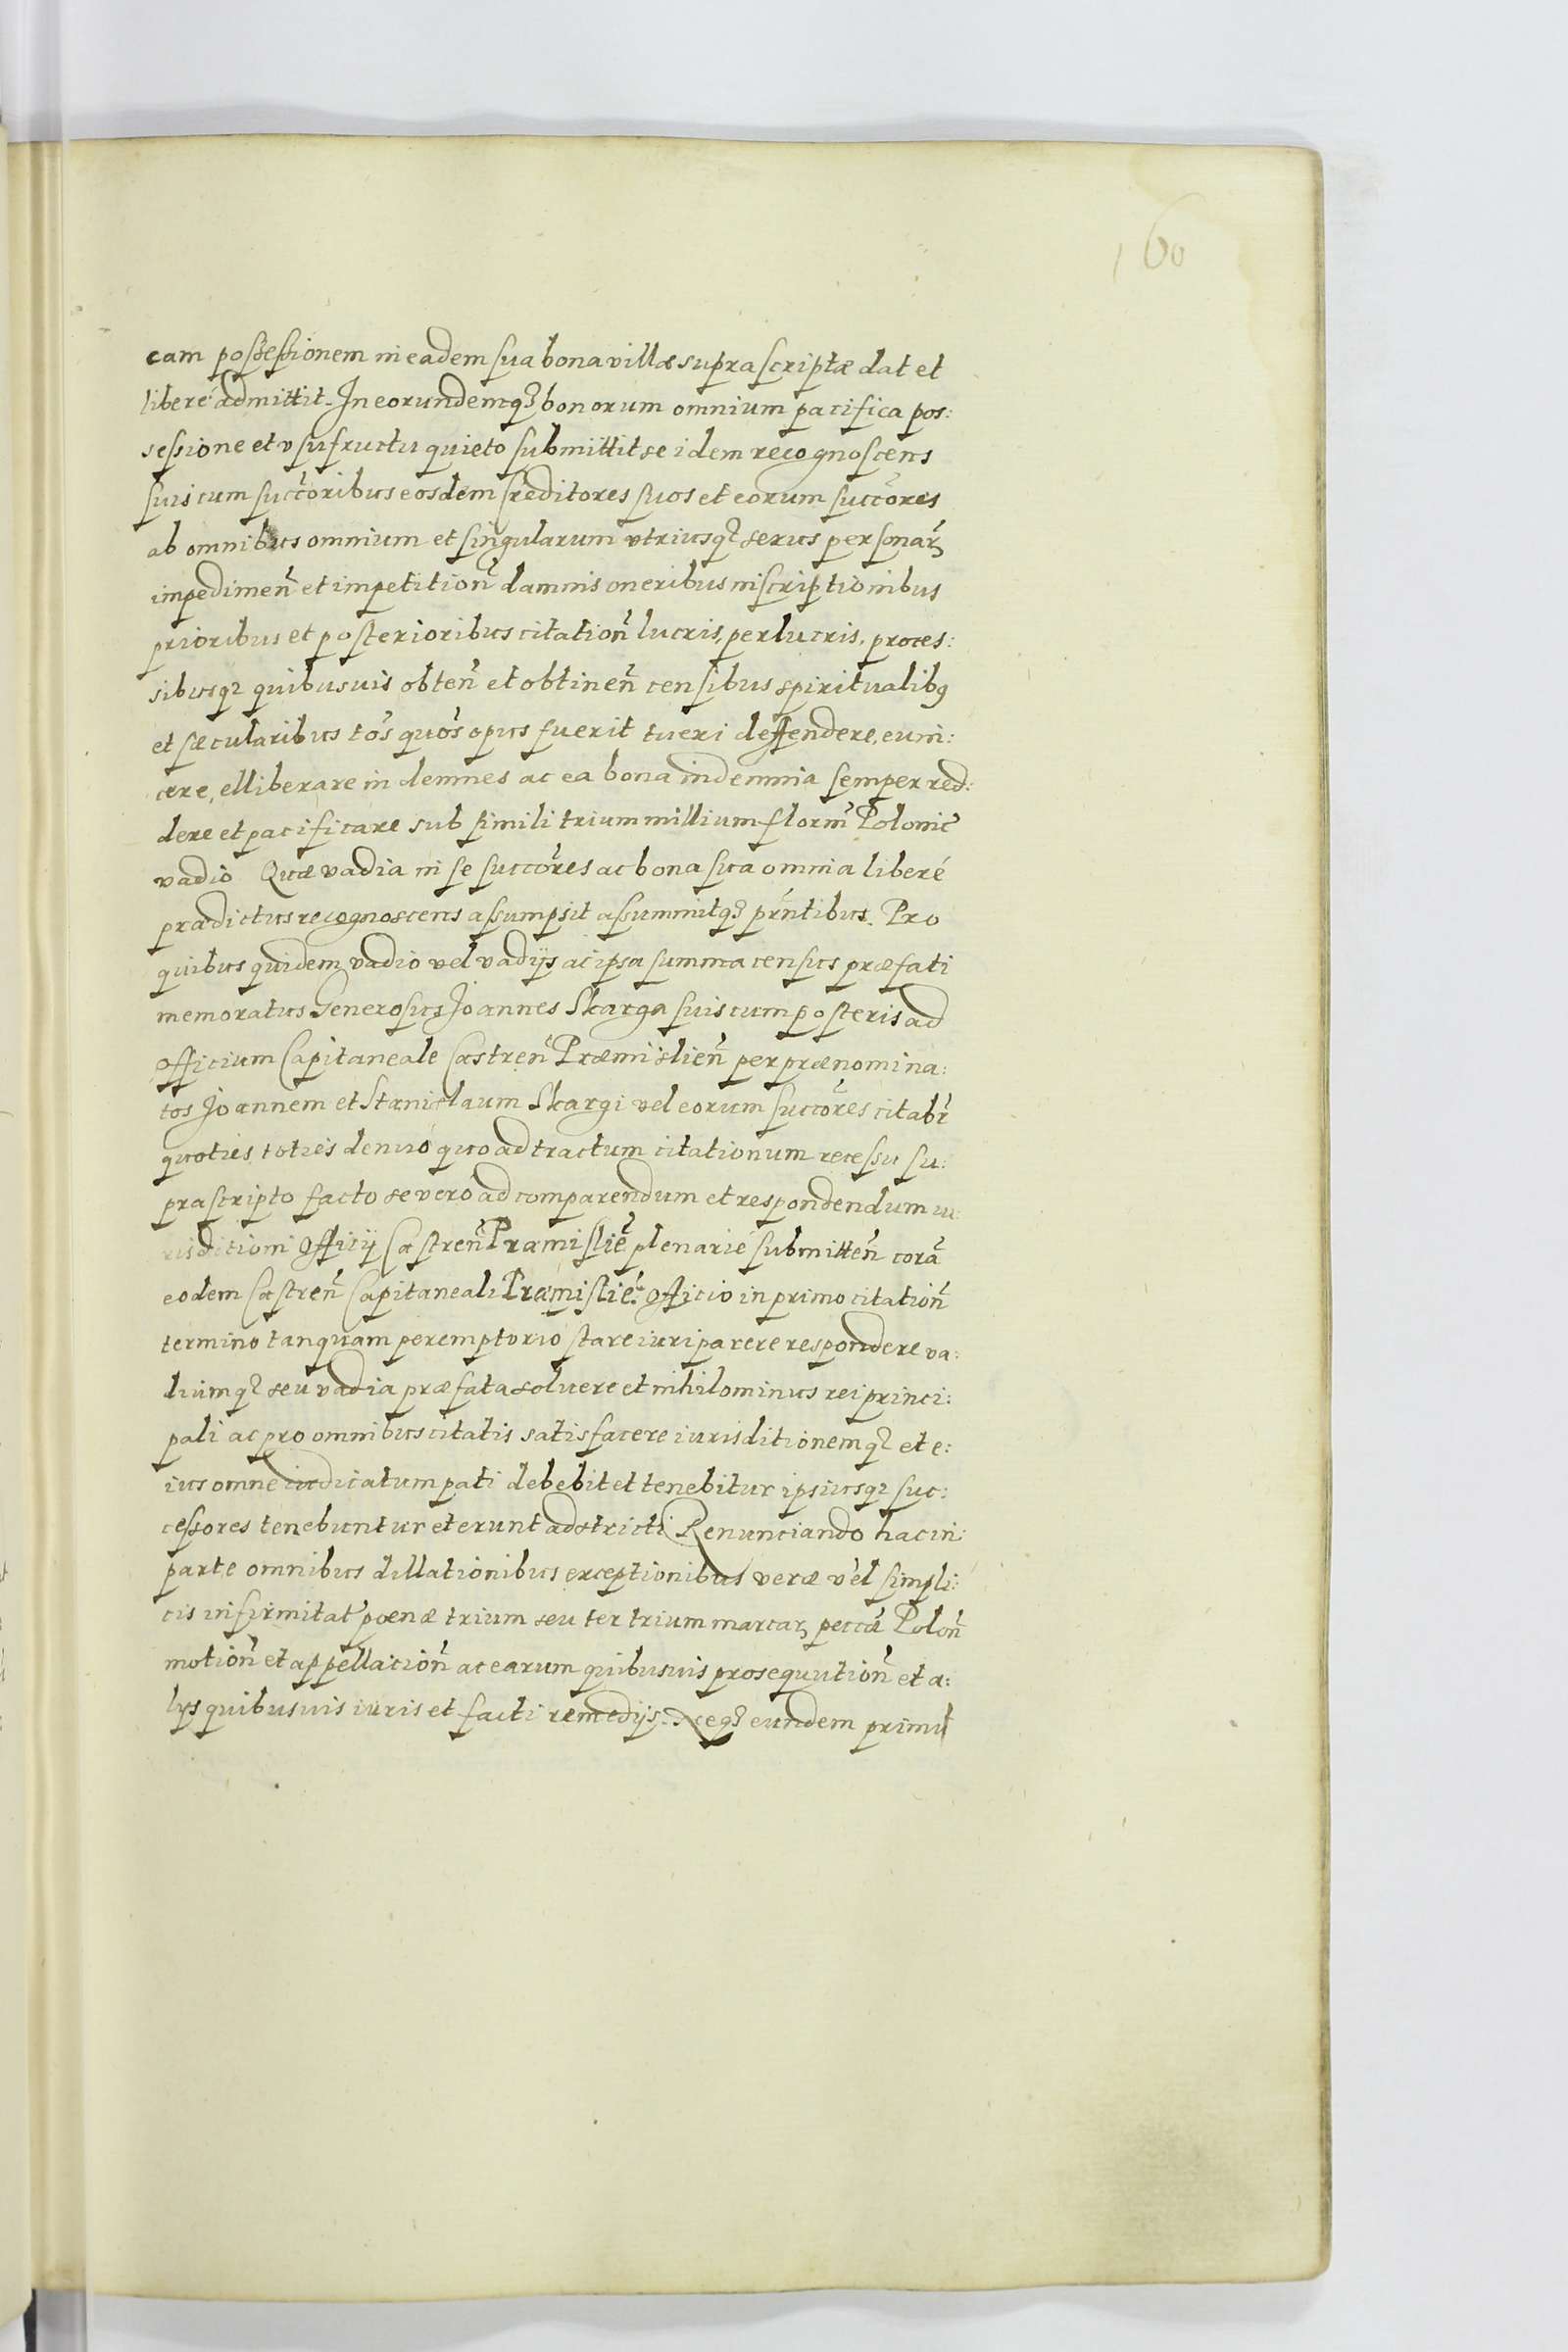 160
cam possessionem in eadem sua bona villæ suprascriptæ dat et
liberé admittit. In eorundemq3 bonorum omnium pacifica pos:
sessione et vsufructu quieto submittit se idem recognoscens
suis cum succ̃oribus eosdem Creditores suos et eorum succ̃ores
ab omnibus omnium et singularum vtriusq3 sexus personarꝫ
impedimeñ et impetitioñ damnis oneribus inscriptionibus
prioribus et posterioribus citatioñ lucris, perlucris, proces:
sibusq3 quibusuis obteñ et obtineñ censibus spiritualibꝰ
et sæcularibus to's quo's opus fuerit tueri deffendere, euin:
cere, elliberare indemnes ac ea bona indemnia semper red:
dere et pacificare sub simili trium millium floren̄ Polonic̃
vadio Quæ vadia in se succ̃ores ac bona sua omnia liberé
prædictus recognoscens assumpsit assummitq3 pn̄tibus. Pro
quibus quidem vadio vel vadijs ac ipsa summa census præfati
memoratus Generosus Joannes Skarga suis cum posteris ad
Officium Capitaneale Castreñ Præmislieñ per prænomina:
tos Joannem et Stanislaum Skargi vel eorum succ̃ores citabr̃
quoties, toties denuó quo ad tractum citationum recessu su:
prascripto facto se vero ad comparendum et respondendum iu:
risditioni Officij Castreñ Præmisliẽ plenarié submitteñ corã
eodem Castreñ Capitaneali Præmisliẽ: Officio in primo citatioñ
termino tanquam peremptorio stare iuri parere respondere va:
diumq3 seu vadia præfata soluere et nihilominus rei princi:
pali ac pro omnibus citatis satisfacere iurisditionemq3 et e:
ius omne iudicatum pati debebit et tenebitur ipsiusq3 suc:
cessores tenebuntur et erunt adstricti Renunciando hac in
parte omnibus dillationibus exceptionibus veræ vel simpli:
cis infirmitat̃ poenæ trium seu ter trium marcarꝫ peccũ Poloñ
motioñ et appellacioñ ac earum quibusuis prosequutioñ et a:
lijs quibusuis iuris et facti remedijs. Neq3 eundem primũ